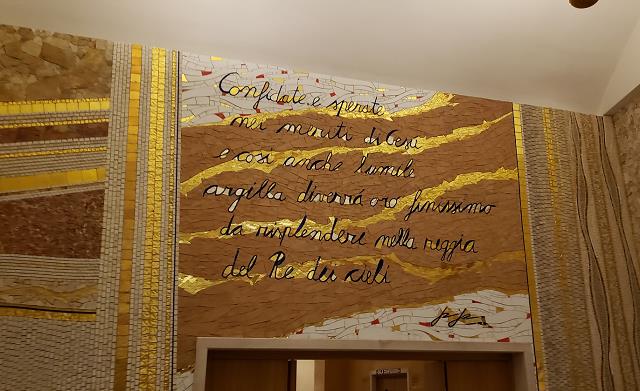 Confidate e sperate
nei meriti di Gesù
e così anche l'umile
argilla diverrà oro finissimo
da risplendere nella reggia
del Re dei cieli